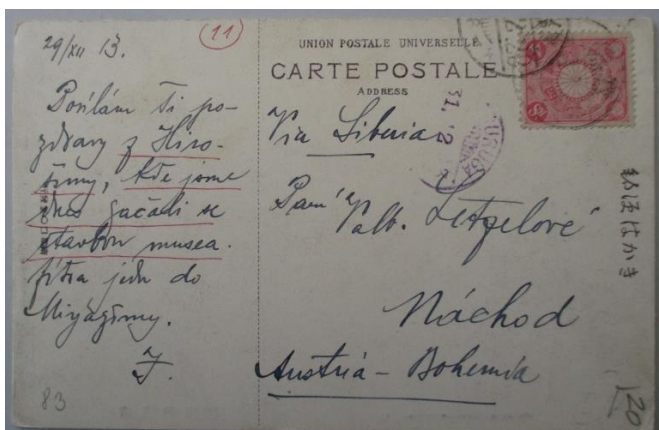 29/XII 13.
(11)
Posílám Ti po-
zdravy z Hiro-
šimy, kde jsme
dnes začali se
stavbou musea.
Zítra jedu do
Miyajimy.
J.
83
UNION POSTALE UNIVERSELLE.
CARTE POSTALE
ADDRESS
Via Siberia
31. 12
TSURUGA
Paní
Valb. Letzelové
Náchod
Austria - Bohemia
きかは便郵
20